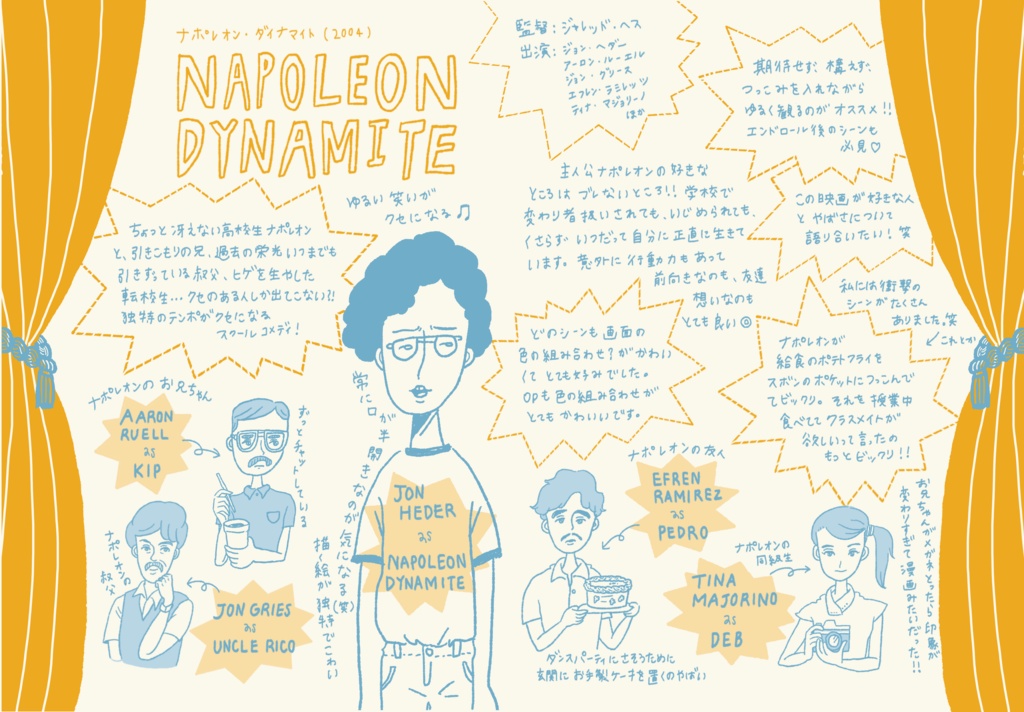 ナポレオン・ダイナマイト(2004)
NAPOLEON
DYNAMITE
監督:ジャレッド・ヘス
出演:ジョン・ヘダー
アーロン・ルーエル
ジョン・グリース
エフレン・ラミレッツ
ティナ・マジョリーノ
ほか
期待せず、構えず、
つっこみを入れながら
ゆるく観るのがオススメ!!
エンドロール後のシーンも
必見♡
ゆるい笑いが
クセになる♫
ちょっと冴えない高校生ナポレオン
と、引きこもりの兄、過去の栄光いつまでも
引きずっている叔父、ヒゲを生やした
転校生…クセのある人しか出てこない?!
独特のテンポがクセになる
スクールコメディ!
主人公ナポレオンの好きな
ところはブレないところ!!学校で
変わり者扱いされても、いじめられても、
くさらずいつだって自分に正直に生きて
います。意外に行動力もあって
前向きなのも、友達
想いなのも
とても良い◎
この映画が好きな人
とやばさについて
語り合いたい!笑
私には衝撃の
シーンがたくさん
ありました。笑
これとか
どのシーンも画面の
色の組み合わせ?がかわい
くてとても好みでした。
OPも色の組み合わせが
とてもかわいいです。
ナポレオンが
給食のポテトフライを
ズボンのポケットにつっこんで
てビックリ。それを授業中
食べててクラスメイトが
欲しいって言ったの
もっとビックリ!!
ナポレオンのお兄ちゃん
AARON
RUELL
as
KIP
ずっとチャットしている
ナポレオンの
叔父
JON GRIES
as
UNCLE RICO
常に口が半開きなのが気になる(笑)
描絵が独特でこわい
JON
HEDER
as
NAPOLEON
DYNAMITE
ナポレオンの友人
EFREN
RAMIREZ
as
PEDRO
ダンスパーティにさそうために
玄関にお手製ケーキを置くのやばい
ナポレオンの
同級生
TINA
MAJORINO
as
DEB
お兄ちゃんがメガネとったら印象が
変わりすぎて漫画みたいだった!!